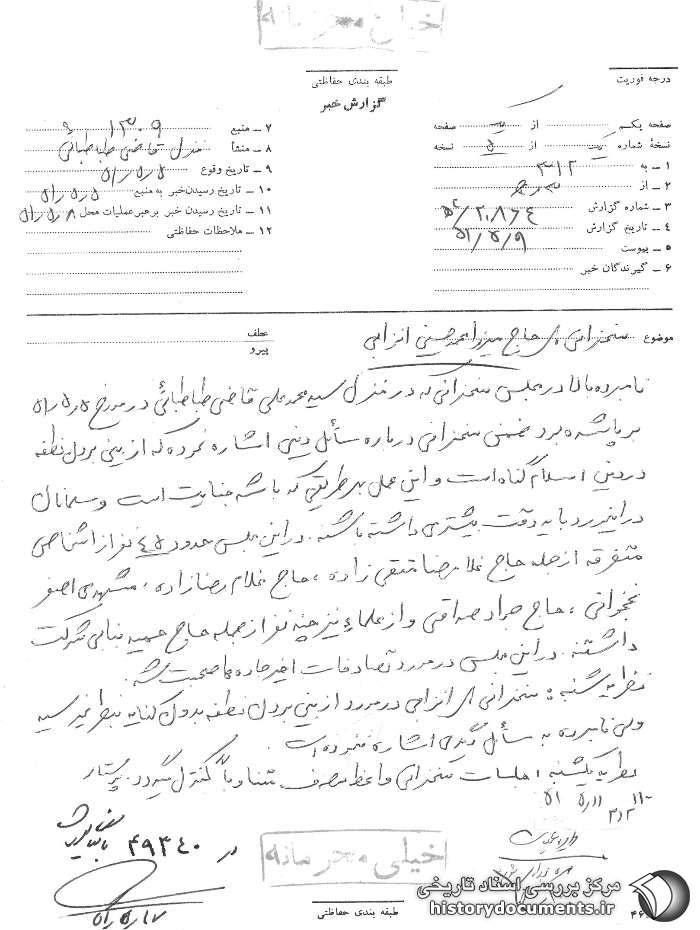 خیلی محرمانه
طبقه بندی حفاظتی
درجه فوریت
گزارش خبر
صفحه یکم از صفحه
نسخهٔ شماره از ۵ نسخه
۱ ـ به ۳۱۲
۲ ـ از
۳ ـ شماره گزارش
۴ ـ تاریخ گزارش ۵۱/۵/۹
۵ ـ پیوست
۶ ـ گیرندگان خبر
۷ ـ منبع ۱۳۰۹
۸ ـ منشأ منزل قاضی طباطبائی
۹ ـ تاریخ وقوع ۵۱/۵/۵
۱۰ ـ تاریخ رسیدن خبر به منبع ۵۱/۵/۵
۱۱ ـ تاریخ رسیدن خبر برهبر عملیات محل ۵۱/۵/۸
۱۲ ـ ملاحظات حفاظتی
موضوع سخنرانی حاج میرزا محمد حسینی انزابی
عطف
پیرو
نامبرده بالا در مجلس سخنرانی که در منزل سید محمد علی قاضی طباطبائی در مورخ ۵۱/۵/۵
بر پا شده بود ضمن سخنرانی درباره مسائل دینی اشاره نمود که از بین بردن نطفه
در دین اسلام گناه است و این عمل بهر طریقی که باشد جنایت است و مسلمانان
در اینمورد باید دقت بیشتری داشته باشند. در این مجلس حدود ۴۵ نفر از اشخاص
متفرقه از جمله حاج غلامرضا متقی زاده ، حاج غلام رضا زاده ، مشهدی اصغر
نخجوانی ، حاج جواد صداقتی و از علماء نیز چند نفر از جمله حاج حمید بنابی شرکت
داشتند. در این مجلس در مورد تصادفات اخیر جاده ها صحبت شد.
نظریه شنبه : سخنرانی انزابی در مورد از بین بردن نطفه بدون کنایه بنظر نمیرسید
ولی نامبرده به مسائل دیگری اشاره ننموده است.
نظریه یکشنبه : جلسات سخنرانی واعظ متناوباً کنترل میگردد. پرستار
در ۴۹۳۴۰
خیلی محرمانه
طبقه بندی حفاظتی
مرکز بررسی اسناد تاریخی
historydocuments.ir